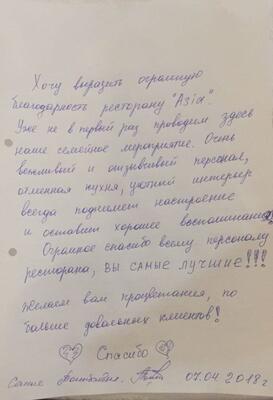 Хочу выразить огромную
благодарность ресторану "Asia".
Уже не в первый раз проводим здесь
наше семейное мероприятие. Очень
вежливый и отзывчивый персонал,
отменная кухня, уютный интерьер
всегда поднимет настроение
и оставит хорошее воспоминание.
Огромное спасибо всему персоналу
ресторана, ВЫ САМЫЕ ЛУЧШИЕ!!!
Желаем вам процветания, по
больше довольных клиентов!
Спасибо
07.04 2018г